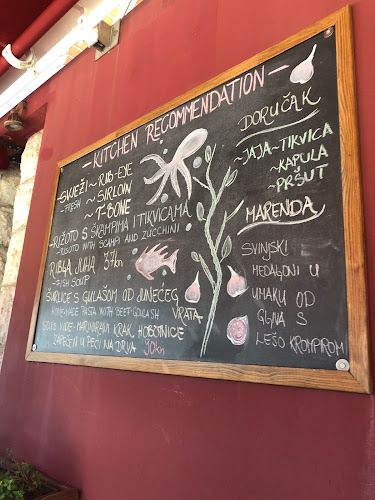 -KITCHEN RECOMMENDATION-
SVJEŽI ~ RIB-EYE
~FRESH ~ SIRLOIN
~ T-BONE
~RIŽOTO S ŠKAMPIMA I TIKVICAMA
~RISOTTO WITH SCAMPI AND ZUCCHINI
RIBLJA JUHA 37kn
~FISH SOUP
ŠURLICE S GULAŠOM OD JUNEĆEG
HOMEMADE PASTA WITH BEEF GULASH
VRATA
MARINIRANI KRAK HOBOTNICE
ZAPEČENI U PEĆI NA DRVA 90kn
DORUČAK
~JAJA~TIKVICA
~KAPULA
~PRŠUT
MARENDA
SVINJSKI
MEDALJONI U
UMAKU OD
S
LEŠO KROMPIROM